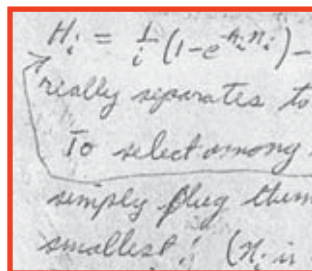 H_i = 1/i (1-e^{-h_i n_i}) -
really separates to
To select among
simply plug them
smallest! (n_i is